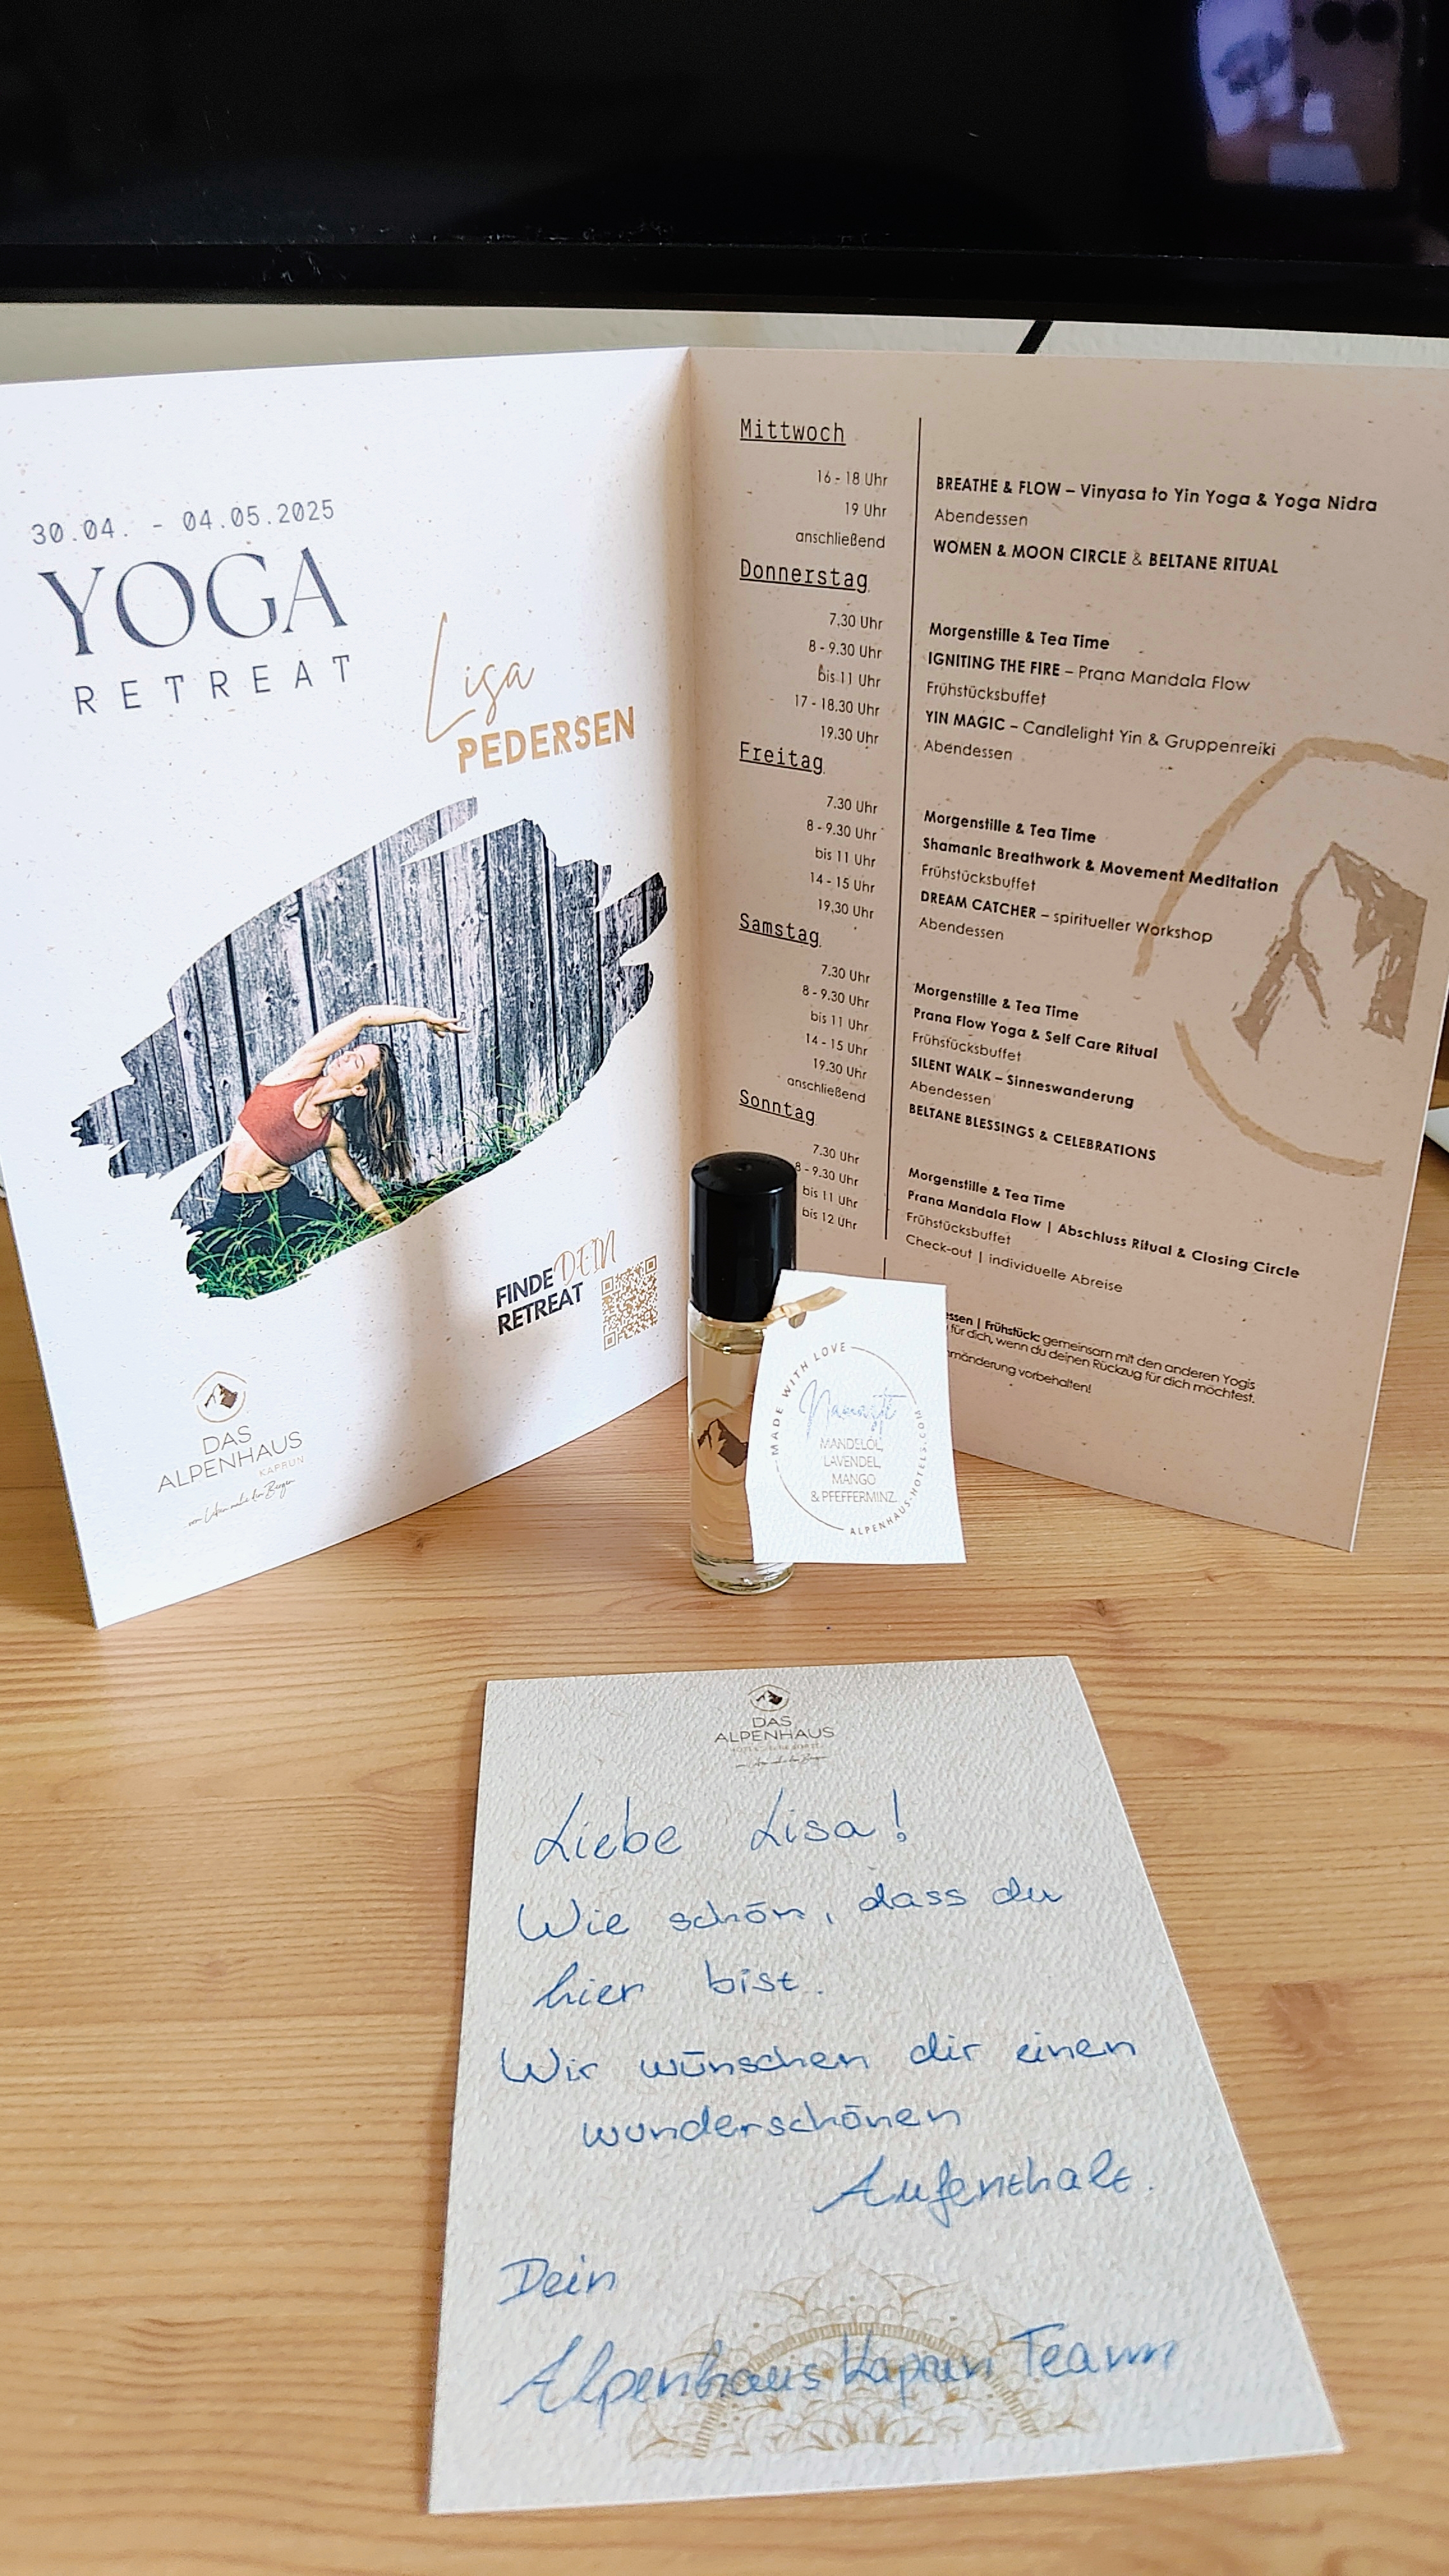 30.04. - 04.05.2025
YOGA
RETREAT
Lisa
PEDERSEN
FINDE DEIN
RETREAT
DAS
ALPENHAUS
KAPRUN
vom Leben nahe den Bergen
Mittwoch
16 - 18 Uhr BREATHE & FLOW – Vinyasa to Yin Yoga & Yoga Nidra
19 Uhr Abendessen
anschließend WOMEN & MOON CIRCLE & BELTANE RITUAL
Donnerstag
7.30 Uhr Morgenstille & Tea Time
8 - 9.30 Uhr IGNITING THE FIRE – Prana Mandala Flow
bis 11 Uhr Frühstücksbuffet
17 - 18.30 Uhr YIN MAGIC – Candlelight Yin & Gruppenreiki
19.30 Uhr Abendessen
Freitag
7.30 Uhr Morgenstille & Tea Time
8 - 9.30 Uhr Shamanic Breathwork & Movement Meditation
bis 11 Uhr Frühstücksbuffet
14 - 15 Uhr DREAM CATCHER – spiritueller Workshop
19.30 Uhr Abendessen
Samstag
7.30 Uhr Morgenstille & Tea Time
8 - 9.30 Uhr Prana Flow Yoga & Self Care Ritual
bis 11 Uhr Frühstücksbuffet
14 - 15 Uhr SILENT WALK – Sinneswanderung
19.30 Uhr Abendessen
anschließend BELTANE BLESSINGS & CELEBRATIONS
Sonntag
7.30 Uhr Morgenstille & Tea Time
8 - 9.30 Uhr Prana Mandala Flow | Abschluss Ritual & Closing Circle
bis 11 Uhr Frühstücksbuffet
bis 12 Uhr Check-out | individuelle Abreise
essen | Frühstück: gemeinsam mit den anderen Yogis
für dich, wenn du deinen Rückzug für dich möchtest.
mänderung vorbehalten!
MADE WITH LOVE
MANDELÖL,
LAVENDEL,
MANGO
& PFEFFERMINZ.
ALPENHAUS-HOTELS.COM
DAS
ALPENHAUS
Liebe Lisa!
Wie schön, dass du
hier bist.
Wir wünschen dir einen
wunderschönen
Aufenthalt.
Dein
Alpenhaus Kaprun Team